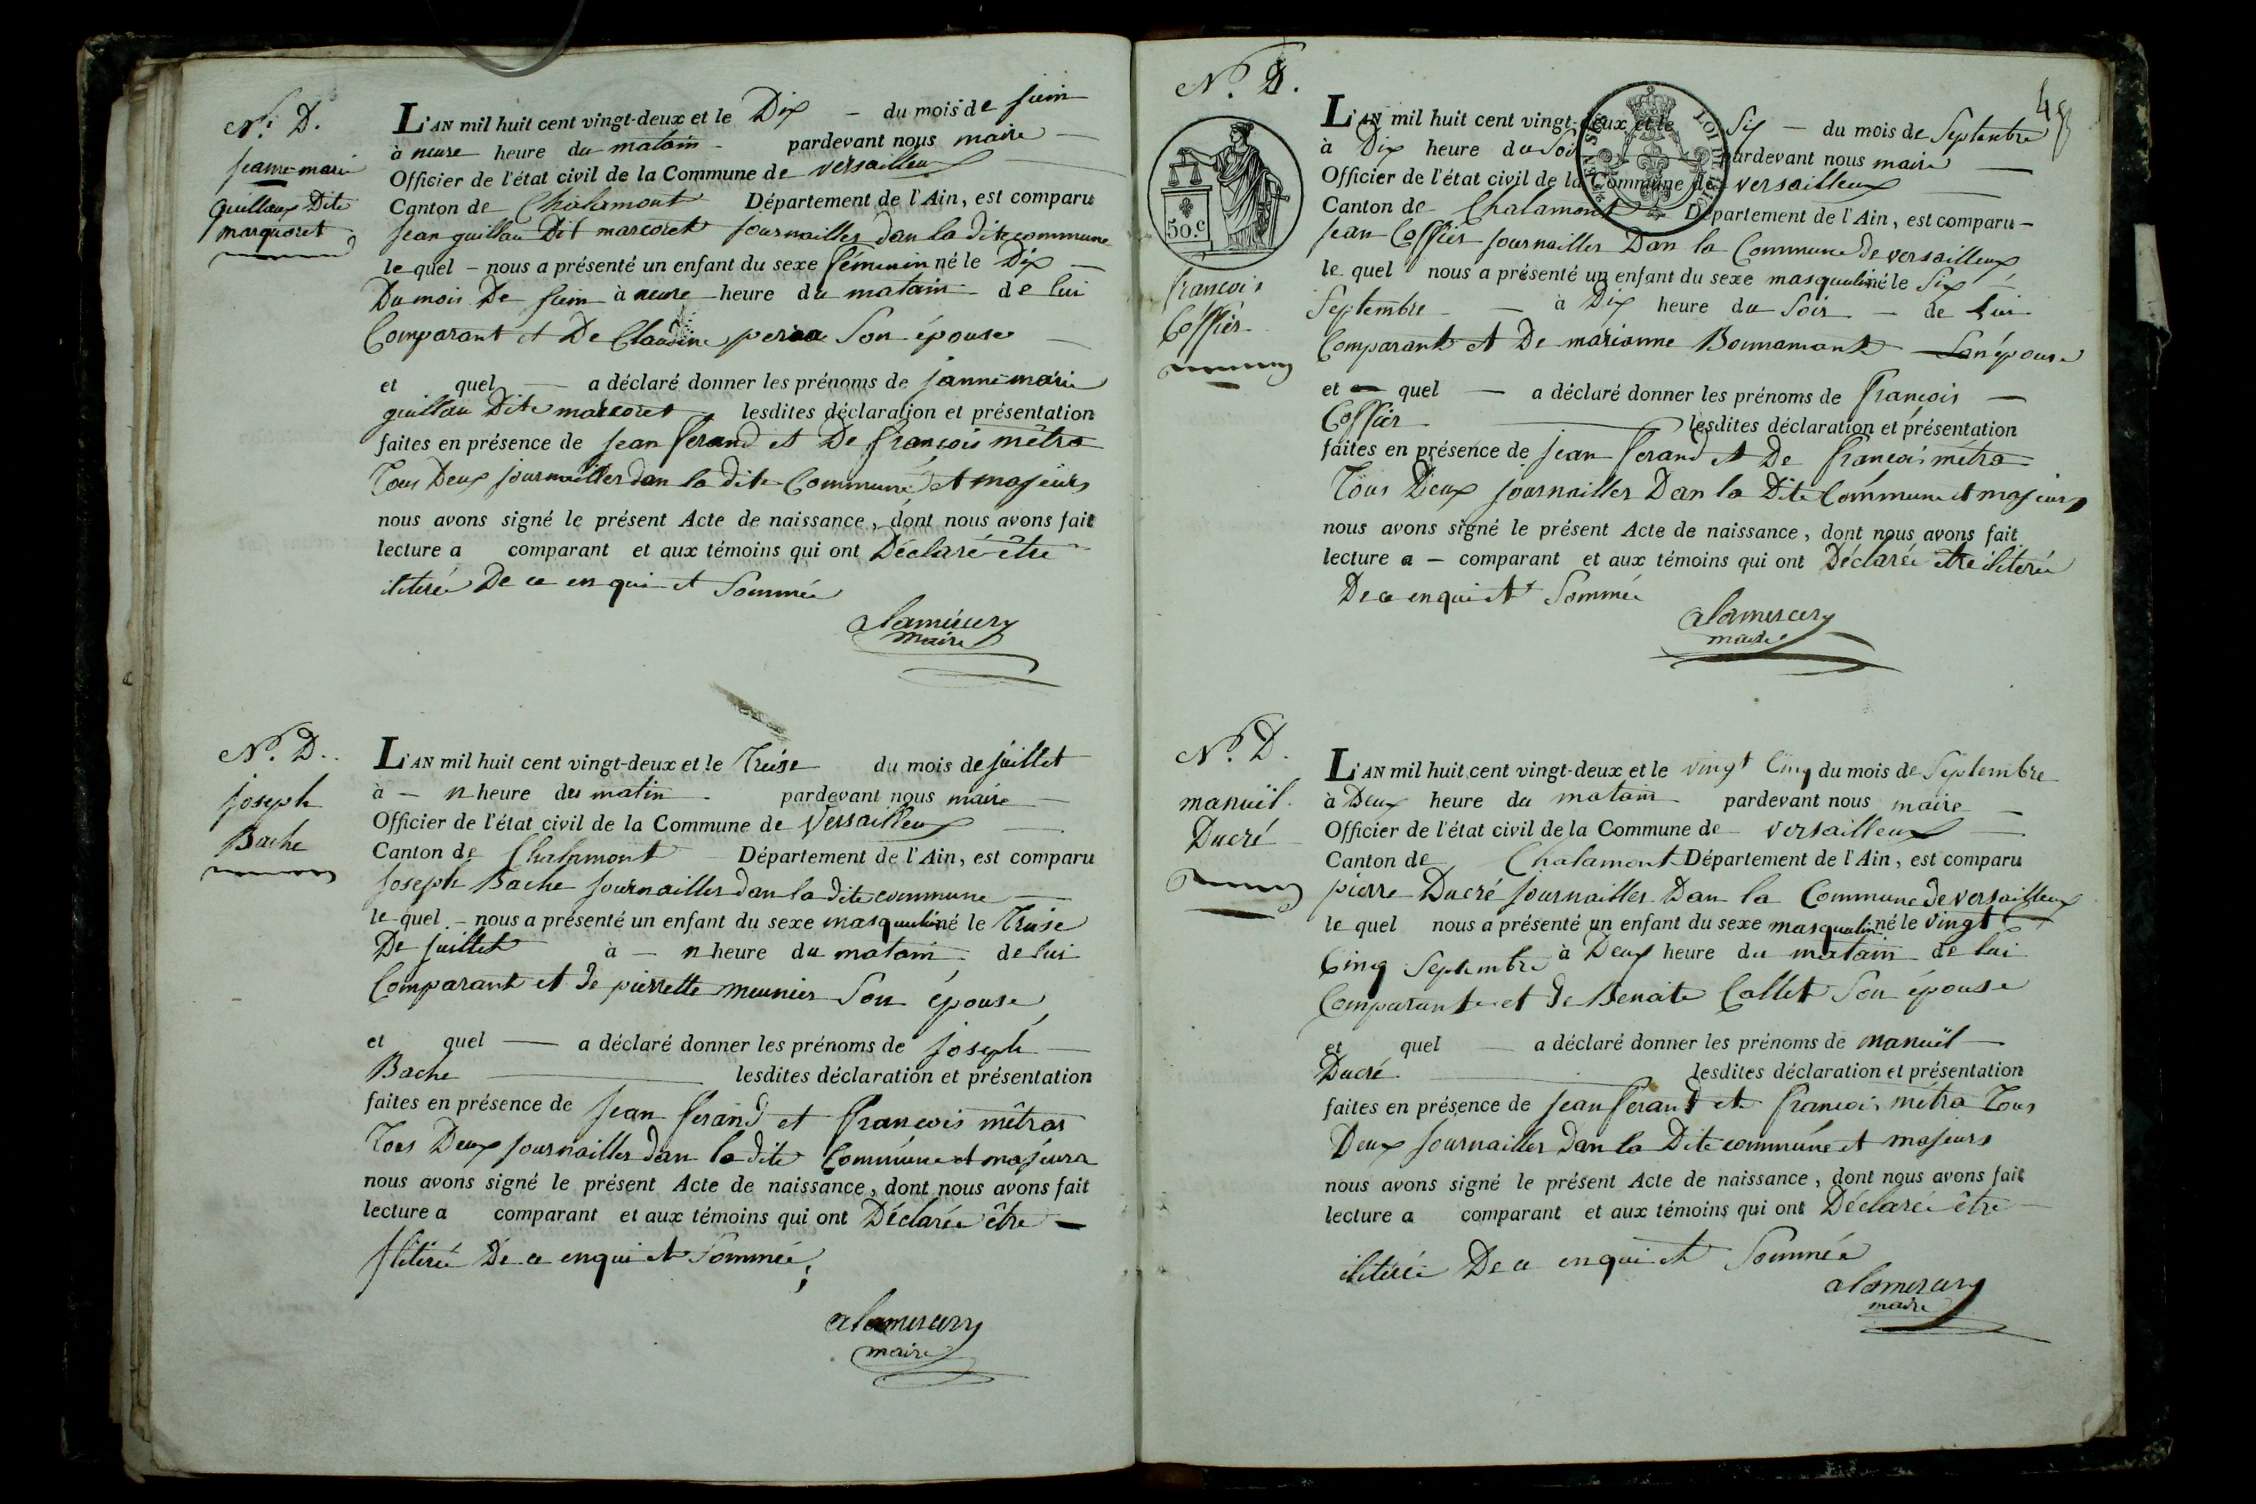 N°. D.
jeanne marie
Guillaux Dite
marquoret
L'AN mil huit cent vingt-deux et le Dix – du mois de juin
à neuve heure du matain – pardevant nous maire —
Officier de l'état civil de la Commune de versailleux
Canton de Chalamont Département de l'Ain, est comparu
jean guillau Dit marcoret journailler dan la dite commune
le quel – nous a présenté un enfant du sexe féminin né le Dix –
Du mois De juin à neuve heure du matain – de lui
Comparant et De Claudine son épouse —
et quel — a déclaré donner les prénoms de janne marie
guillau Dite marcoret lesdites déclaration et présentation
faites en présence de jean ferand et De françois mêtra
Tous Deux journailler dan la dite Commune et majeurs
nous avons signé le présent Acte de naissance, dont nous avons fait
lecture a comparant et aux témoins qui ont Déclaré être
iliteré De ce enqui et Sommée
alamercery
maire
N°. D.
joseph
Bache
L'AN mil huit cent vingt-deux et le Treise du mois de juillet
à – n heure du matin – pardevant nous maire —
Officier de l'état civil de la Commune de Versailleux —
Canton de Chalamont Département de l'Ain, est comparu
joseph Bache journailler dan la dite commune —
le quel – nous a présenté un enfant du sexe masqulin né le Treise
De juillet à – n heure du matain – de lui
Comparant et de pierrette meunier Son épouse
et quel — a déclaré donner les prénoms de joseph —
Bache — lesdites déclaration et présentation
faites en présence de jean ferand et françois mêtras
Tous Deux journailler dan la dite Commune et majeurs
nous avons signé le présent Acte de naissance, dont nous avons fait
lecture a comparant et aux témoins qui ont Déclarée être —
iliterée De ce enqui et Sommée
alamercery
maire
N°. D.
50.c
françois
Coffier
48
L'AN mil huit cent vingt-deux et le Six — du mois de Septembre
à Dix heure du Soir pardevant nous maire —
Officier de l'état civil de la Commune de versailleux
Canton de Chalamont Département de l'Ain, est comparu –
jean Coffier journailler Dan la Commune de versailleux
le quel nous a présenté un enfant du sexe masqualin né le Six –
Septembre — à Dix heure du Soir — de lui
Comparant et De marianne Bonnamant — Son épouse
et — quel — a déclaré donner les prénoms de françois —
Coffier — lesdites déclaration et présentation
faites en présence de jean ferand et De françois métra
Tous Deux journailler Dan la Dite Commune et majeurs
nous avons signé le présent Acte de naissance, dont nous avons fait
lecture a – comparant et aux témoins qui ont Déclarée être iliterée
De ce enqui et Sommée
alamercery
maire
N°. D.
manuël
Ducré
L'AN mil huit cent vingt-deux et le vingt Cinq du mois de Septembre
à Deux heure du matain pardevant nous maire —
Officier de l'état civil de la Commune de – versailleux —
Canton de Chalamont Département de l'Ain, est comparu
pierre Ducré journailler Dan la Commune de versailleux
le quel nous a présenté un enfant du sexe masqualin né le vingt
Cinq Septembre à Deux heure du matain – de lui
Comparant et de Benoite Collet Son épouse
et quel — a déclaré donner les prénoms de manuël —
Ducré — lesdites déclaration et présentation
faites en présence de jean ferand et françois métra Tous
Deux journailler dan la Dite commune et majeurs
nous avons signé le présent Acte de naissance, dont nous avons fait
lecture a comparant et aux témoins qui ont Déclarée être
iliterée De ce enqui et Sommée
alamercery
maire